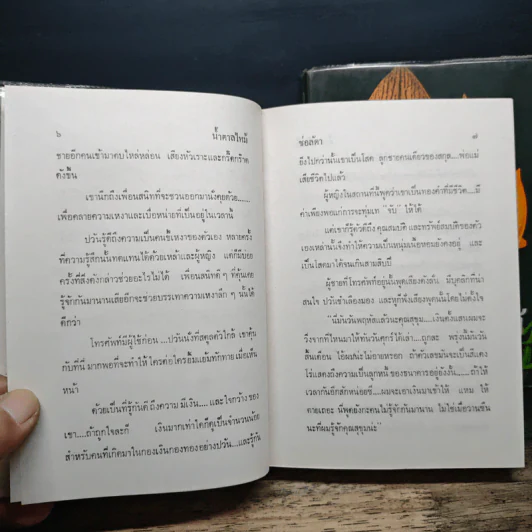 ๖
น้ำตาลไหม้
ชายอีกคนเข้ามาตบไหล่หล่อน เสียงหัวเราะและกรีดกร๊าด
ดังขึ้น
เขานึกถึงเพื่อนสนิทที่จะชวนออกมานั่งคุยด้วย.....
เพื่อคลายความเหงาและเบื่อหน่ายที่เป็นอยู่ในเวลานี้
ปวันรู้ดีถึงความเป็นคนขี้เหงาของตัวเอง หลายครั้ง
ที่ความรู้สึกนั้นทดแทนได้ด้วยเหล้าและผู้หญิง แต่ก็มีบ่อย
ครั้งที่สิ่งดังกล่าวช่วยอะไรไม่ได้ เพื่อนสนิทดี ๆ ที่คุ้นเคย
รู้จักกันมานานเสียอีกที่จะช่วยบรรเทาความเหงาลึก ๆ นั้นได้
ดีกว่า
โทรศัพท์มีผู้ใช้ก่อน...ปวันนั่งที่สตูลตัวใกล้ เขาคุ้น
กับที่นี่ มากพอที่จะทำให้ใครต่อใครยิ้มแย้มทักทาย เมื่อเห็น
หน้า
ด้วยเป็นที่รู้กันดีถึงความ มีเงิน....และใจกว้าง ของ
เขา....ถ้าถูกใจละก็ เงินมากเท่าใดก็ดูเป็นจำนวนน้อย
สำหรับคนที่เกิดมาในกองเงินกองทองอย่างปวัน...และรู้กัน
ช่อลัดา
๗
ยิ่งไปกว่านั้นเขาเป็นโสด ลูกชายคนเดียวของสกุล....พ่อแม่
เสียชีวิตไปแล้ว
ผู้หญิงในสถานที่นี้พูดว่าเขาเป็นทองคำที่มีชีวิต....มี
ค่าเพียงพอแก่การจะทุ่มเท "จับ" ให้ได้
แต่เขาก็รู้ตัวดีถึง คุณสมบัติ และทรัพย์สมบัติของตัว
เองเหล่านั้นจึงทำให้ความเป็นหนุ่มเนื้อหอมยังคงอยู่ และ
เป็นโสดมาได้จนเกินสามสิบปี
ผู้ชายที่โทรศัพท์อยู่นั้นพูดเสียงดังลั่น มีบุคลิกที่น่า
สนใจ ปวันชำเลืองมอง และหูก็ฟังเสียงพูดนั้นโดยไม่ตั้งใจ
"นี่มันวันพฤหัสแล้วนะคุณสุขุม....เงินตั้งแสนผมจะ
วิ่งจากที่ไหนมาให้ทันวันศุกร์ได้เล่า....ถูกละ พรุ่งนี้มันวัน
สิ้นเดือน โอ้ผมไม่อายหรอก ถ้าตัวเลขมันจะเป็นสีแดง
โร่แสดงถึงความเป็นลูกหนี้ ของธนาคารอยู่ยังงั้น....ถ้าให้
เวลากันอีกสักหน่อยซี่....ผมจะเอาเงินมาเข้าให้ แหม ให้
ตายเถอะ นี่พูดยังกะคนไม่รู้จักกันมานาน ไม่ใช่เมื่อวานซืน
นะที่ผมรู้จักคุณสุขุมน่ะ"